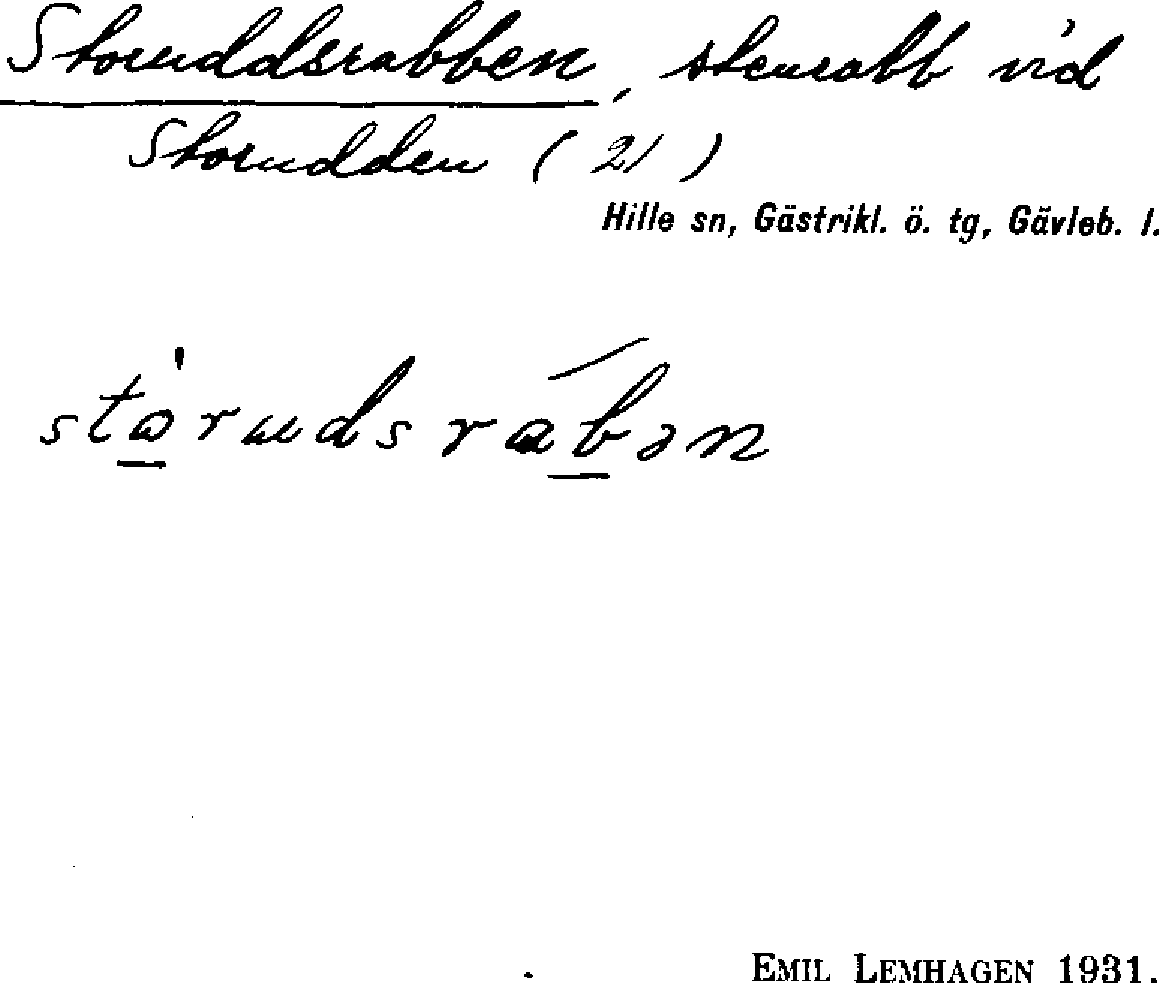 Storuddsrabben, stenrabb vid
Storudden (21)
Hille sn, Gästrikl. ö. tg, Gävleb. l.
stὼ̲rudsrab̲ən
EMIL LEMHAGEN 1931.